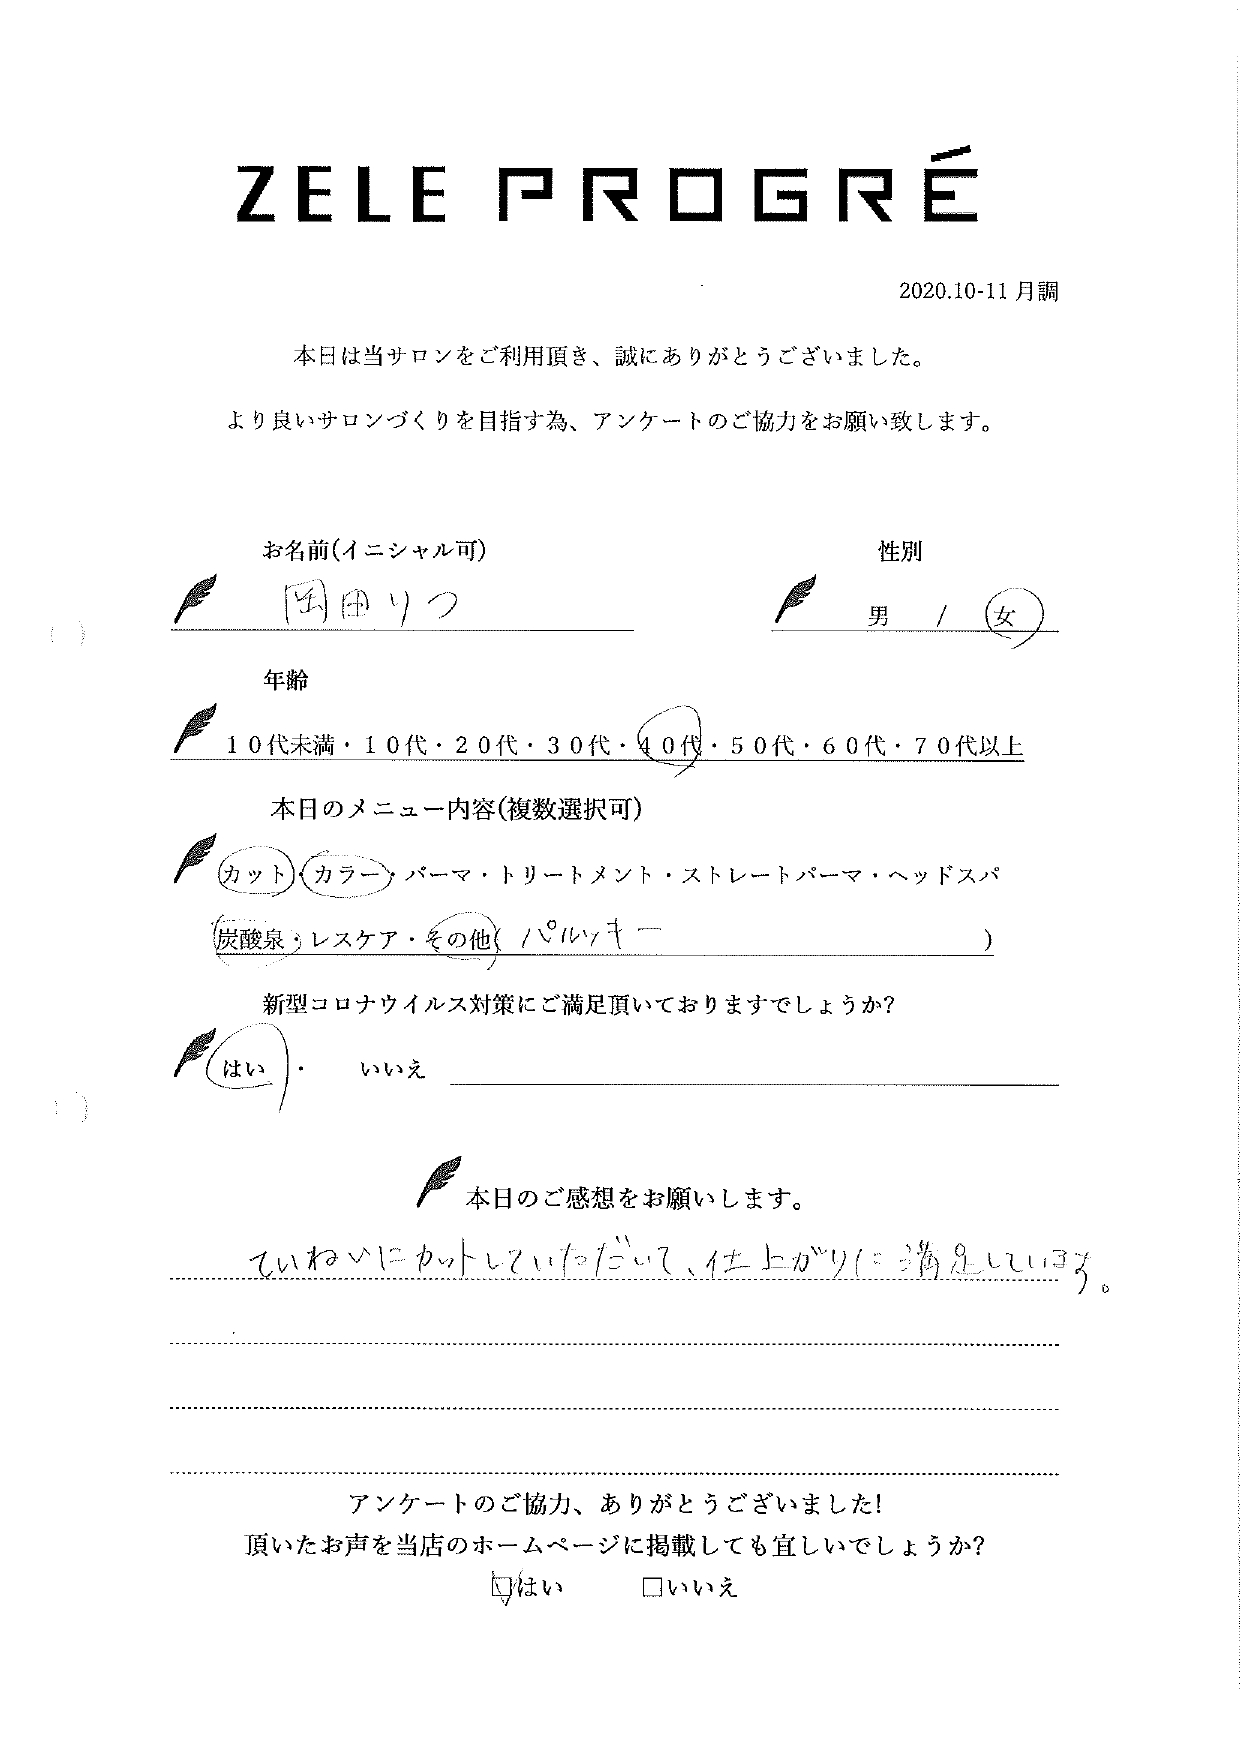 ZELE PROGRÉ
2020.10-11 月調
本日は当サロンをご利用頂き、誠にありがとうございました。
より良いサロンづくりを目指す為、アンケートのご協力をお願い致します。
お名前(イニシャル可) 性別
岡田りつ 男 / 女
年齢
１０代未満・１０代・２０代・３０代・４０代・５０代・６０代・７０代以上
本日のメニュー内容(複数選択可)
カット・カラー・パーマ・トリートメント・ストレートパーマ・ヘッドスパ
炭酸泉・レスケア・その他( パルッキー )
新型コロナウイルス対策にご満足頂いておりますでしょうか?
はい ・ いいえ
本日のご感想をお願いします。
ていねいにカットしていただいて、仕上がりに満足しています。
アンケートのご協力、ありがとうございました!
頂いたお声を当店のホームページに掲載しても宜しいでしょうか?
☑はい □いいえ